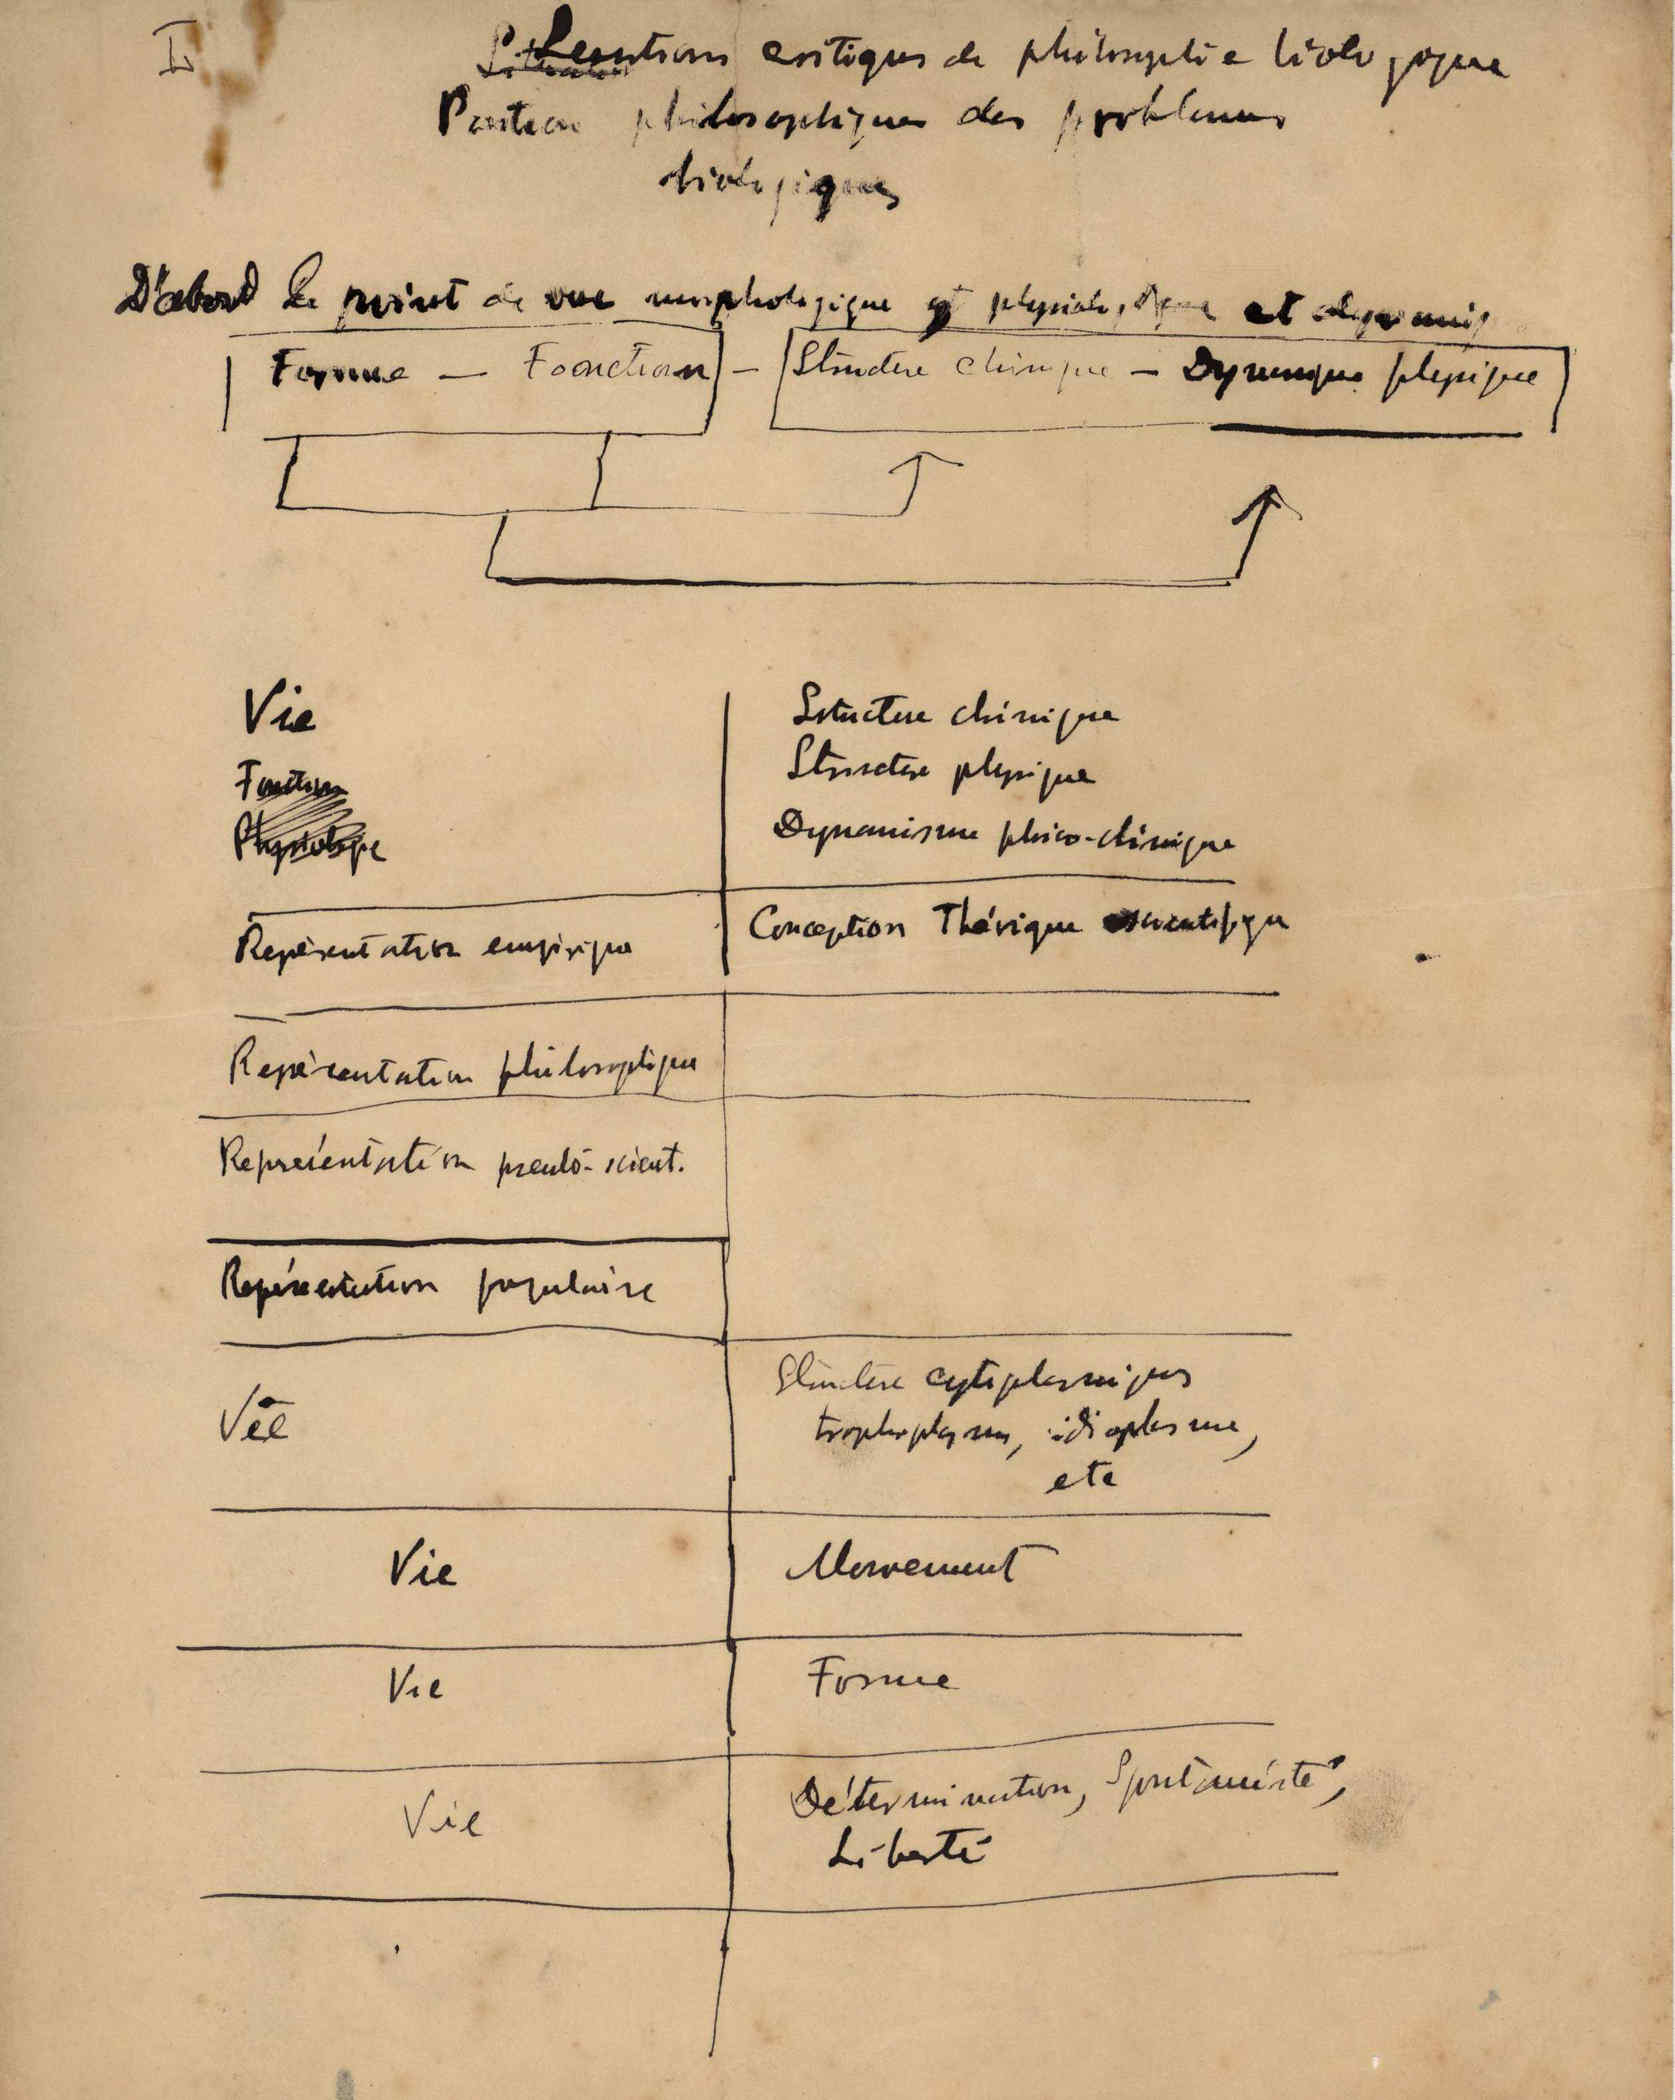 I
critiques de philosophie biologique
Position philosophique des problemes
biologiques
D'abord le point de vue morphologique et physiologique et dynamiq
Forme — Fonction — Structure chimique — Dynamique physique
Vie
Structure chimique
Fonction
Structure physique
Physiologie
Dynamisme phico-chimique
Représentation empirique
Conception Théorique scientifique
Représentation philosophique
Représentation pseudo-scient.
Représentation populaire
Vie
Structure cytoplasmiques
trophoplasme, idioplasme,
etc
Vie
Mouvement
Vie
Forme
Vie
Détermination, Spontanéité,
Liberté